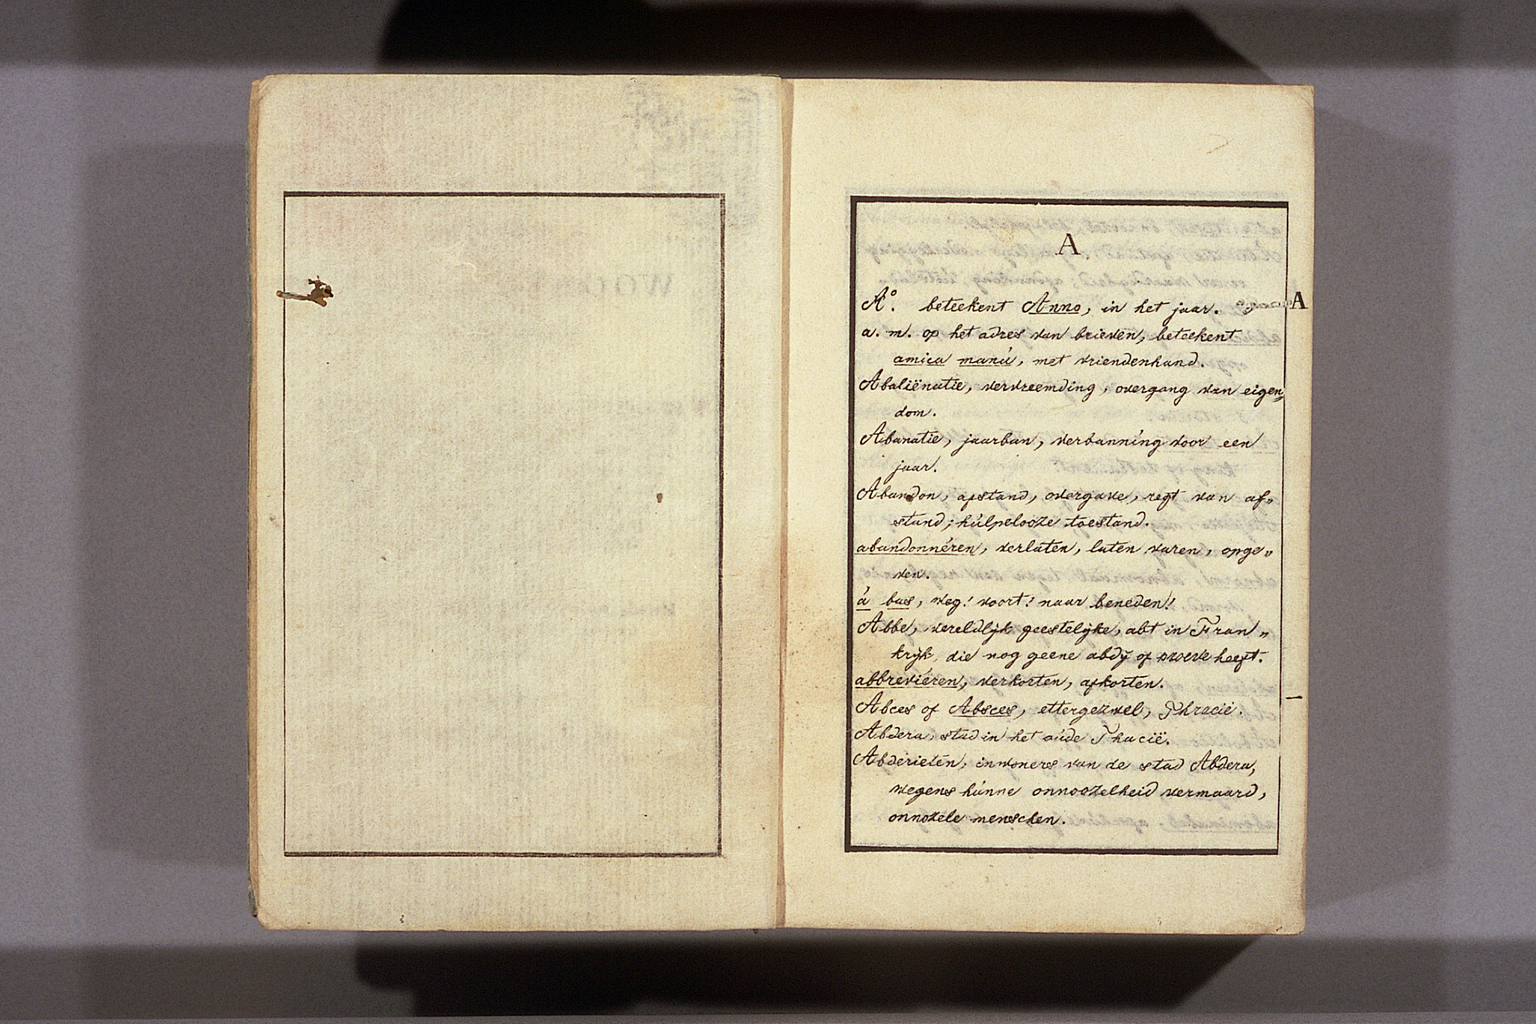 A
A
Aº. beteekent Anno, in het jaar.
a. m. op het adres van brieven, beteekent
amica manú, met vriendenhand.
Abaliënatie, vervreemding, overgang van eigen„
dom.
Abanatie, jaarban, verbanning voor een
jaar.
Abandon, afstand, overgave, regt van af„
stand; húlpelooze toestand.
abandonnéren, verlaten, laten varen, opge„
ven.
á bas, weg! voort! naar beneden!
Abbé, wereldlijk geestelijke, abt in Fran„
krijk, die nog geene abdij of heeft.
abbreviéren, verkorten, afkorten.
Abces of Absces, ettergezwel, Thracië.
Abdera, stad in het oúde Thacië.
Abderieten, inwoners van de stad Abdera,
wegens húnne onnoozelheid vermaard,
onnozele menschen.